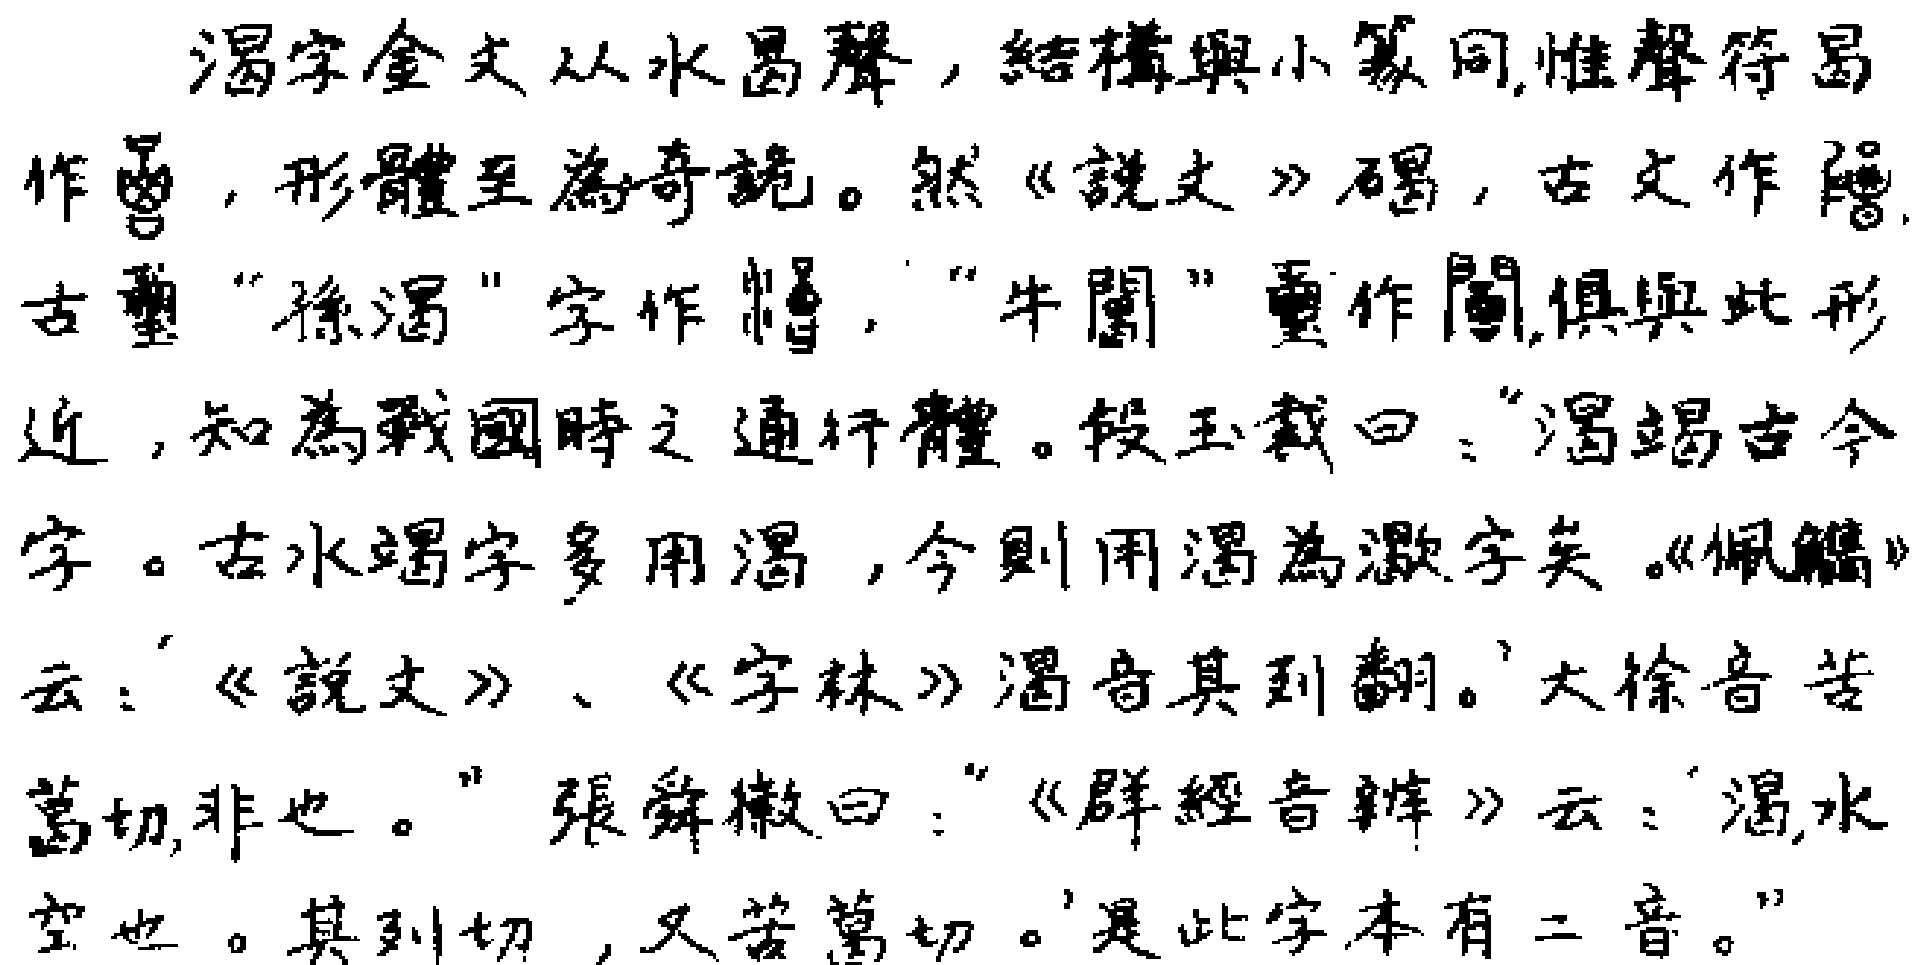 渴字金文从水曷聲，結構與小篆同，惟聲符曷
作，形體至為奇詭。然《說文》碣，古文作，
古璽“孫渴”字作，“牛闍”璽作，俱與此形
近，知為戰國時之通行體。段玉裁曰：“渴竭古今
字。古水竭字多用渴，今則用渴為㵣字矣。《佩觿》
云：‘《說文》、《字林》渴音其列翻。’大徐音苦
葛切，非也。”張舜徽曰：“《群經音辨》云：‘渴，水
空也。其列切，又苦葛切。’是此字本有二音。”